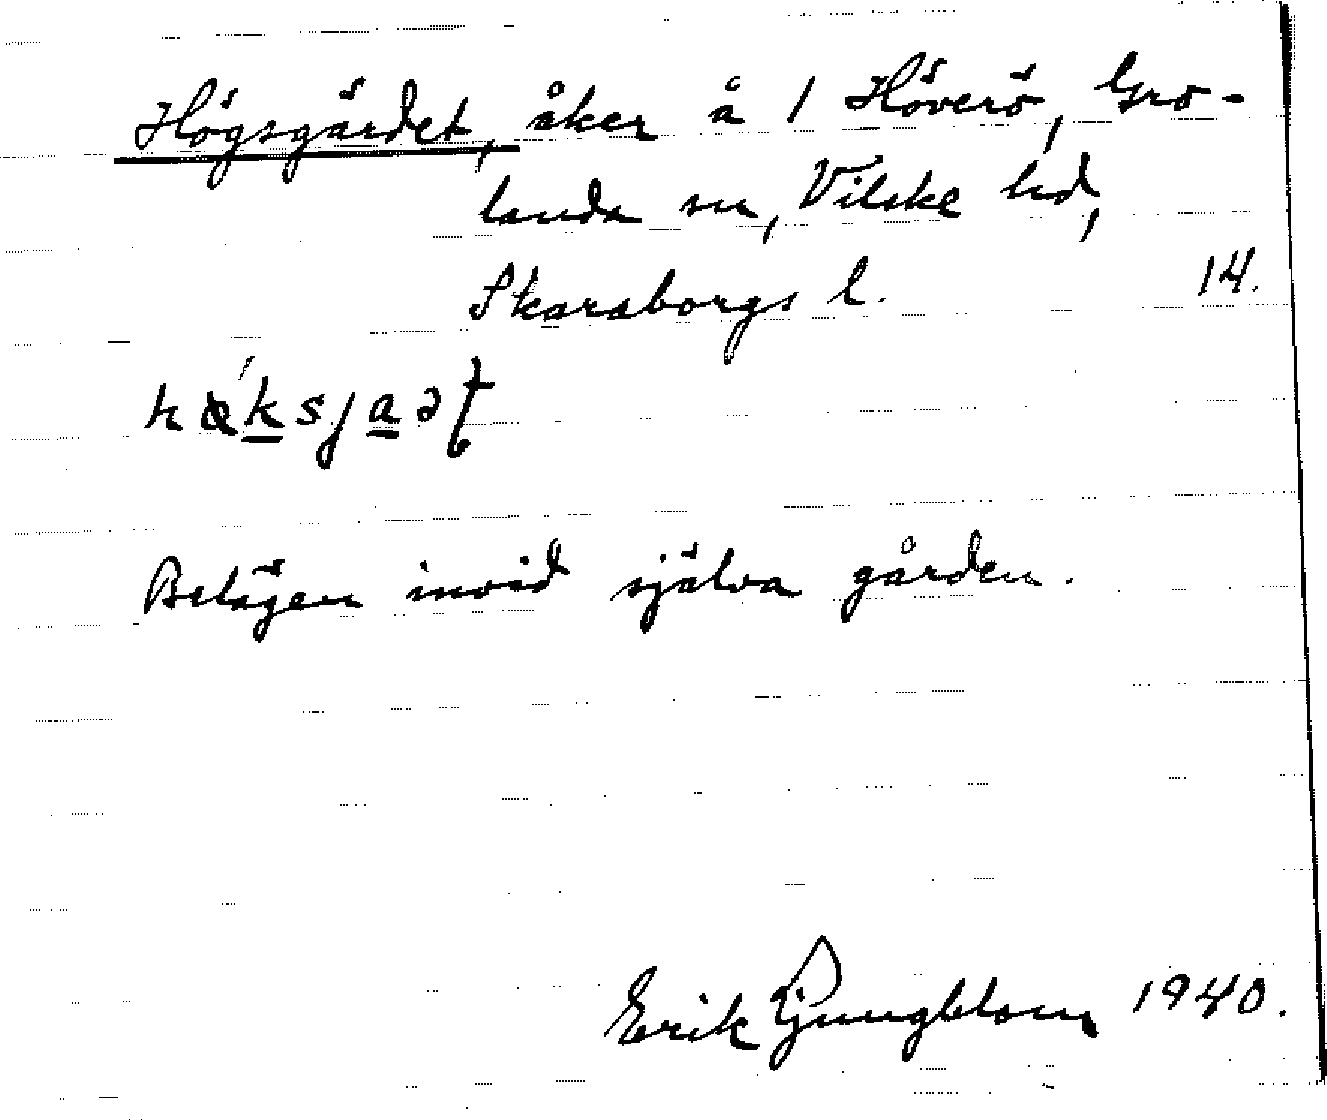 Högsgärdet, åker å 1 Höverö, Gro-
landa sn, Vilske hd,
Skaraborgs l. 14.
Belägen invid själva gården.
Erik Ljungblom 1940.